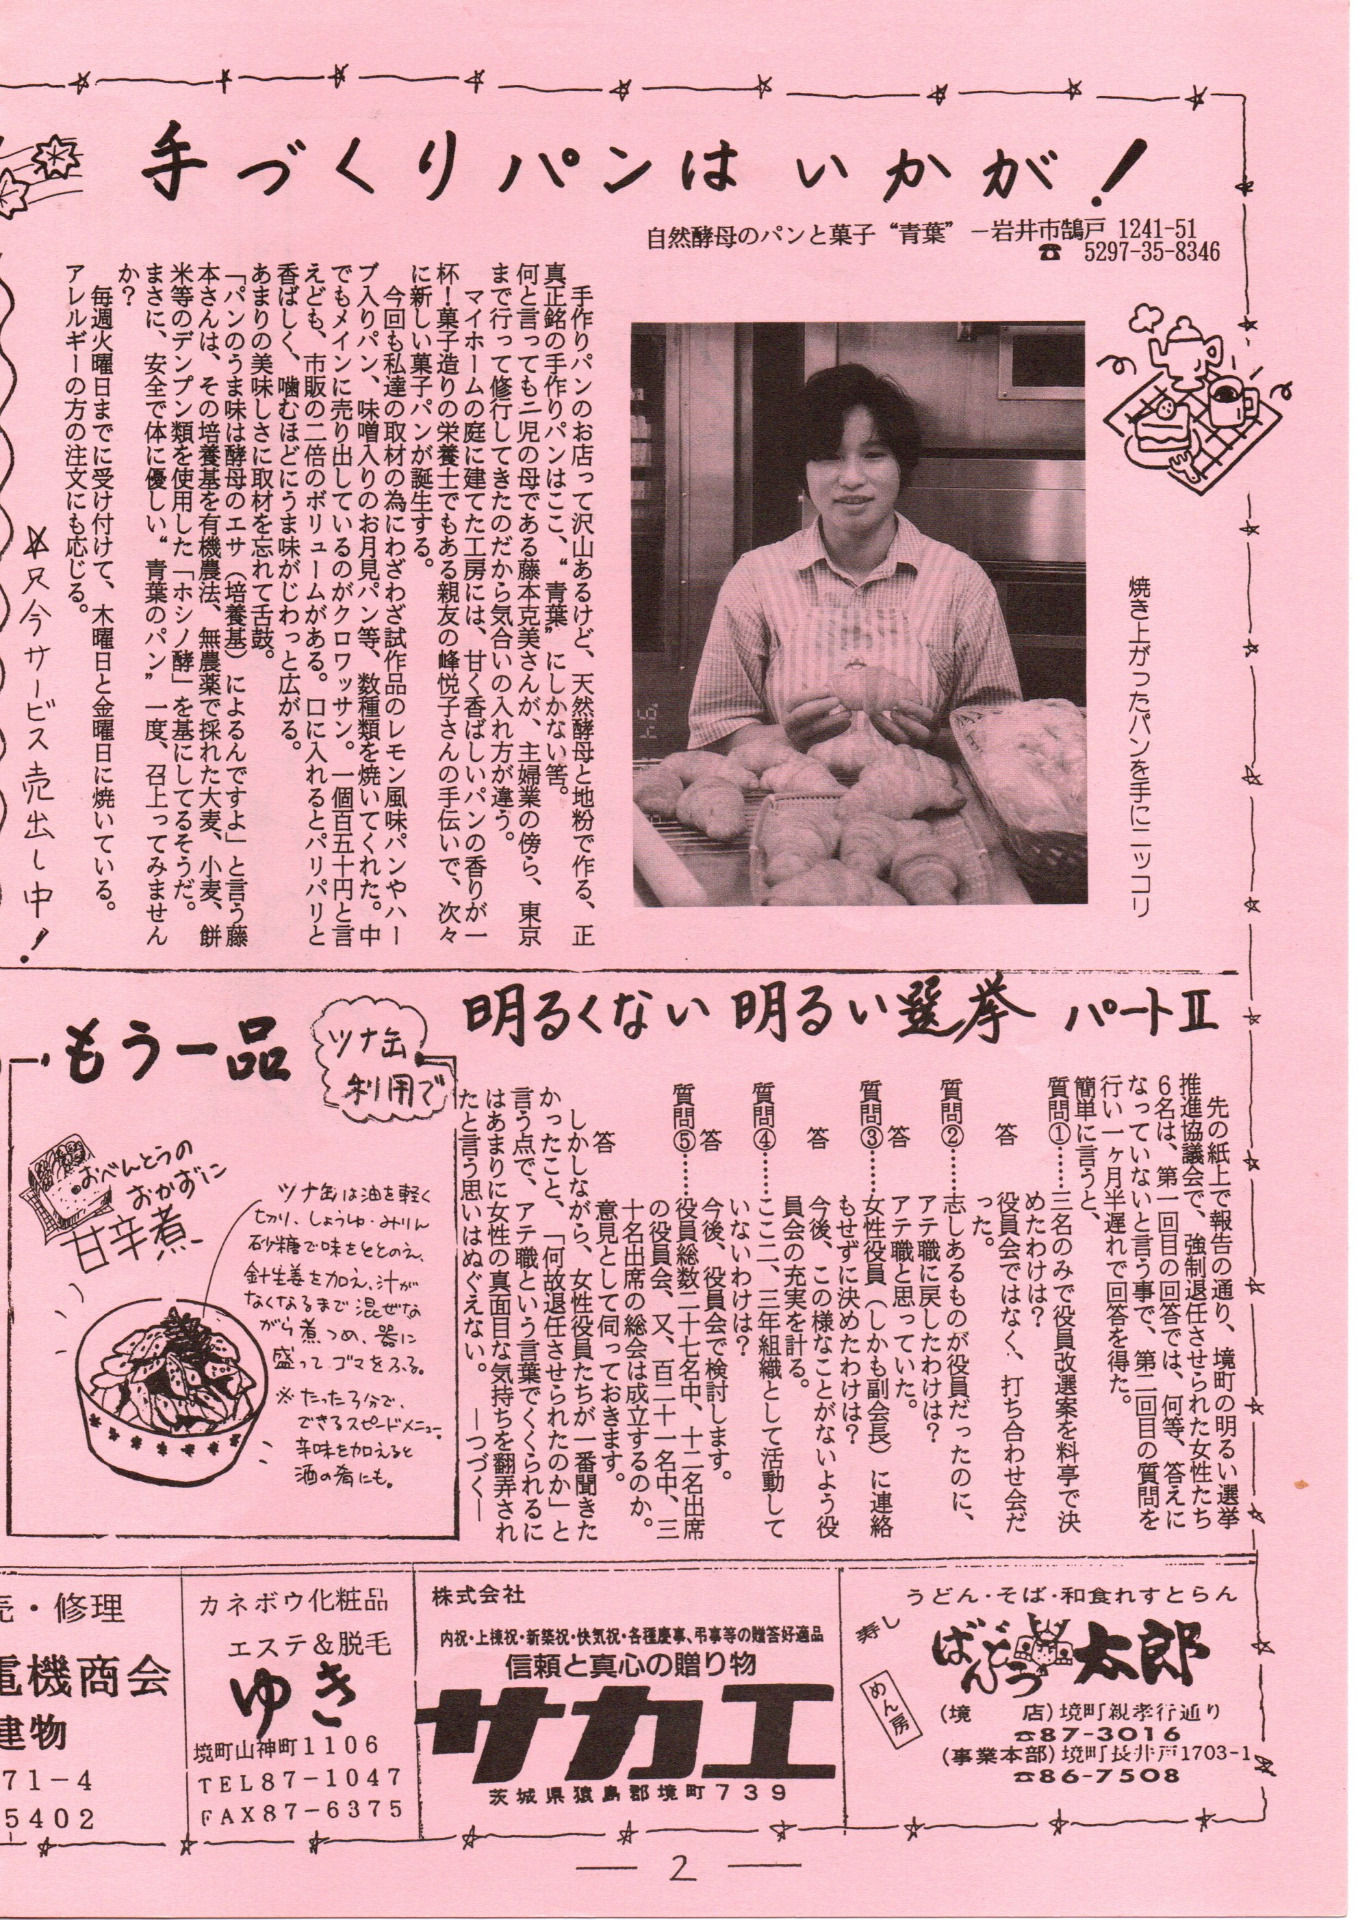 手づくりパンは いかが！
自然酵母のパンと菓子 “青葉” －岩井市鵠戸 1241-51
☎ 5297-35-8346
焼き上がったパンを手にニッコリ
手作りパンのお店って沢山あるけど、天然酵母と地粉で作る、正
真正銘の手作りパンはここ、“青葉”にしかない筈。
何と言っても二児の母である藤本克美さんが、主婦業の傍ら、東京
まで行って修行してきたのだから気合いの入れ方が違う。
マイホームの庭に建てた工房には、甘く香ばしいパンの香りが一
杯！菓子造りの栄養士でもある親友の峰悦子さんの手伝いで、次々
に新しい菓子パンが誕生する。
今回も私達の取材の為にわざわざ試作品のレモン風味パンやハー
ブ入りパン、味噌入りのお月見パン等、数種類を焼いてくれた。中
でもメインに売り出しているのがクロワッサン。一個百五十円と言
えども、市販の二倍のボリュームがある。口に入れるとパリパリと
香ばしく、噛むほどにうま味がじわっと広がる。
あまりの美味しさに取材を忘れて舌鼓。
「パンのうま味は酵母のエサ（培養基）によるんですよ」と言う藤
本さんは、その培養基を有機農法、無農薬で採れた大麦、小麦、餅
米等のデンプン類を使用した「ホシノ酵」を基にしてるそうだ。
まさに、安全で体に優しい“青葉のパン”一度、召上ってみません
か？
毎週火曜日までに受け付けて、木曜日と金曜日に焼いている。
アレルギーの方の注文にも応じる。
☆只今サービス売出し中！
明るくない 明るい選挙 パートⅡ
先の紙上で報告の通り、境町の明るい選挙
推進協議会で、強制退任させられた女性たち
6名は、第一回目の回答では、何等、答えに
なっていないと言う事で、第二回目の質問を
行い一ヶ月半遅れで回答を得た。
簡単に言うと、
質問①……三名のみで役員改選案を料亭で決
めたわけは？
答 役員会ではなく、打ち合わせ会だ
った。
質問②……志しあるものが役員だったのに、
アテ職に戻したわけは？
答 アテ職と思っていた。
質問③……女性役員（しかも副会長）に連絡
もせずに決めたわけは？
答 今後、この様なことがないよう役
員会の充実を計る。
質問④……ここ二、三年組織として活動して
いないわけは？
答 今後、役員会で検討します。
質問⑤……役員総数二十七名中、十二名出席
の役員会、又、百二十一名中、三
十名出席の総会は成立するのか。
答 意見として伺っておきます。
しかしながら、女性役員たちが一番聞きた
かったこと、「何故退任させられたのか」と
言う点で、アテ職という言葉でくくられるに
はあまりに女性の真面目な気持ちを翻弄され
たと言う思いはぬぐえない。 ―つづく―
もう一品
ツナ缶
利用で
おべんとうの
おかずに
甘辛煮
ツナ缶は油を軽く
切り、しょうゆ・みりん
砂糖で味をととのえ、
針生姜を加え、汁が
なくなるまで混ぜな
がら煮つめ、器に
盛ってゴマをふる。
※たった3分で、
できるスピードメニュー。
辛味を加えると
酒の肴にも。
売・修理
電機商会
建物
71－4
5402
カネボウ化粧品
エステ＆脱毛
ゆき
境町山神町1106
TEL87－1047
FAX87－6375
株式会社
内祝・上棟祝・新築祝・快気祝・各種慶事、弔事等の贈答好適品
信頼と真心の贈り物
サカエ
茨城県猿島郡境町739
うどん・そば・和食れすとらん
寿し
ばんどう太郎
めん房
(境 店) 境町親孝行通り
☎87-3016
(事業本部) 境町長井戸1703-1
☎86-7508
― 2 ―